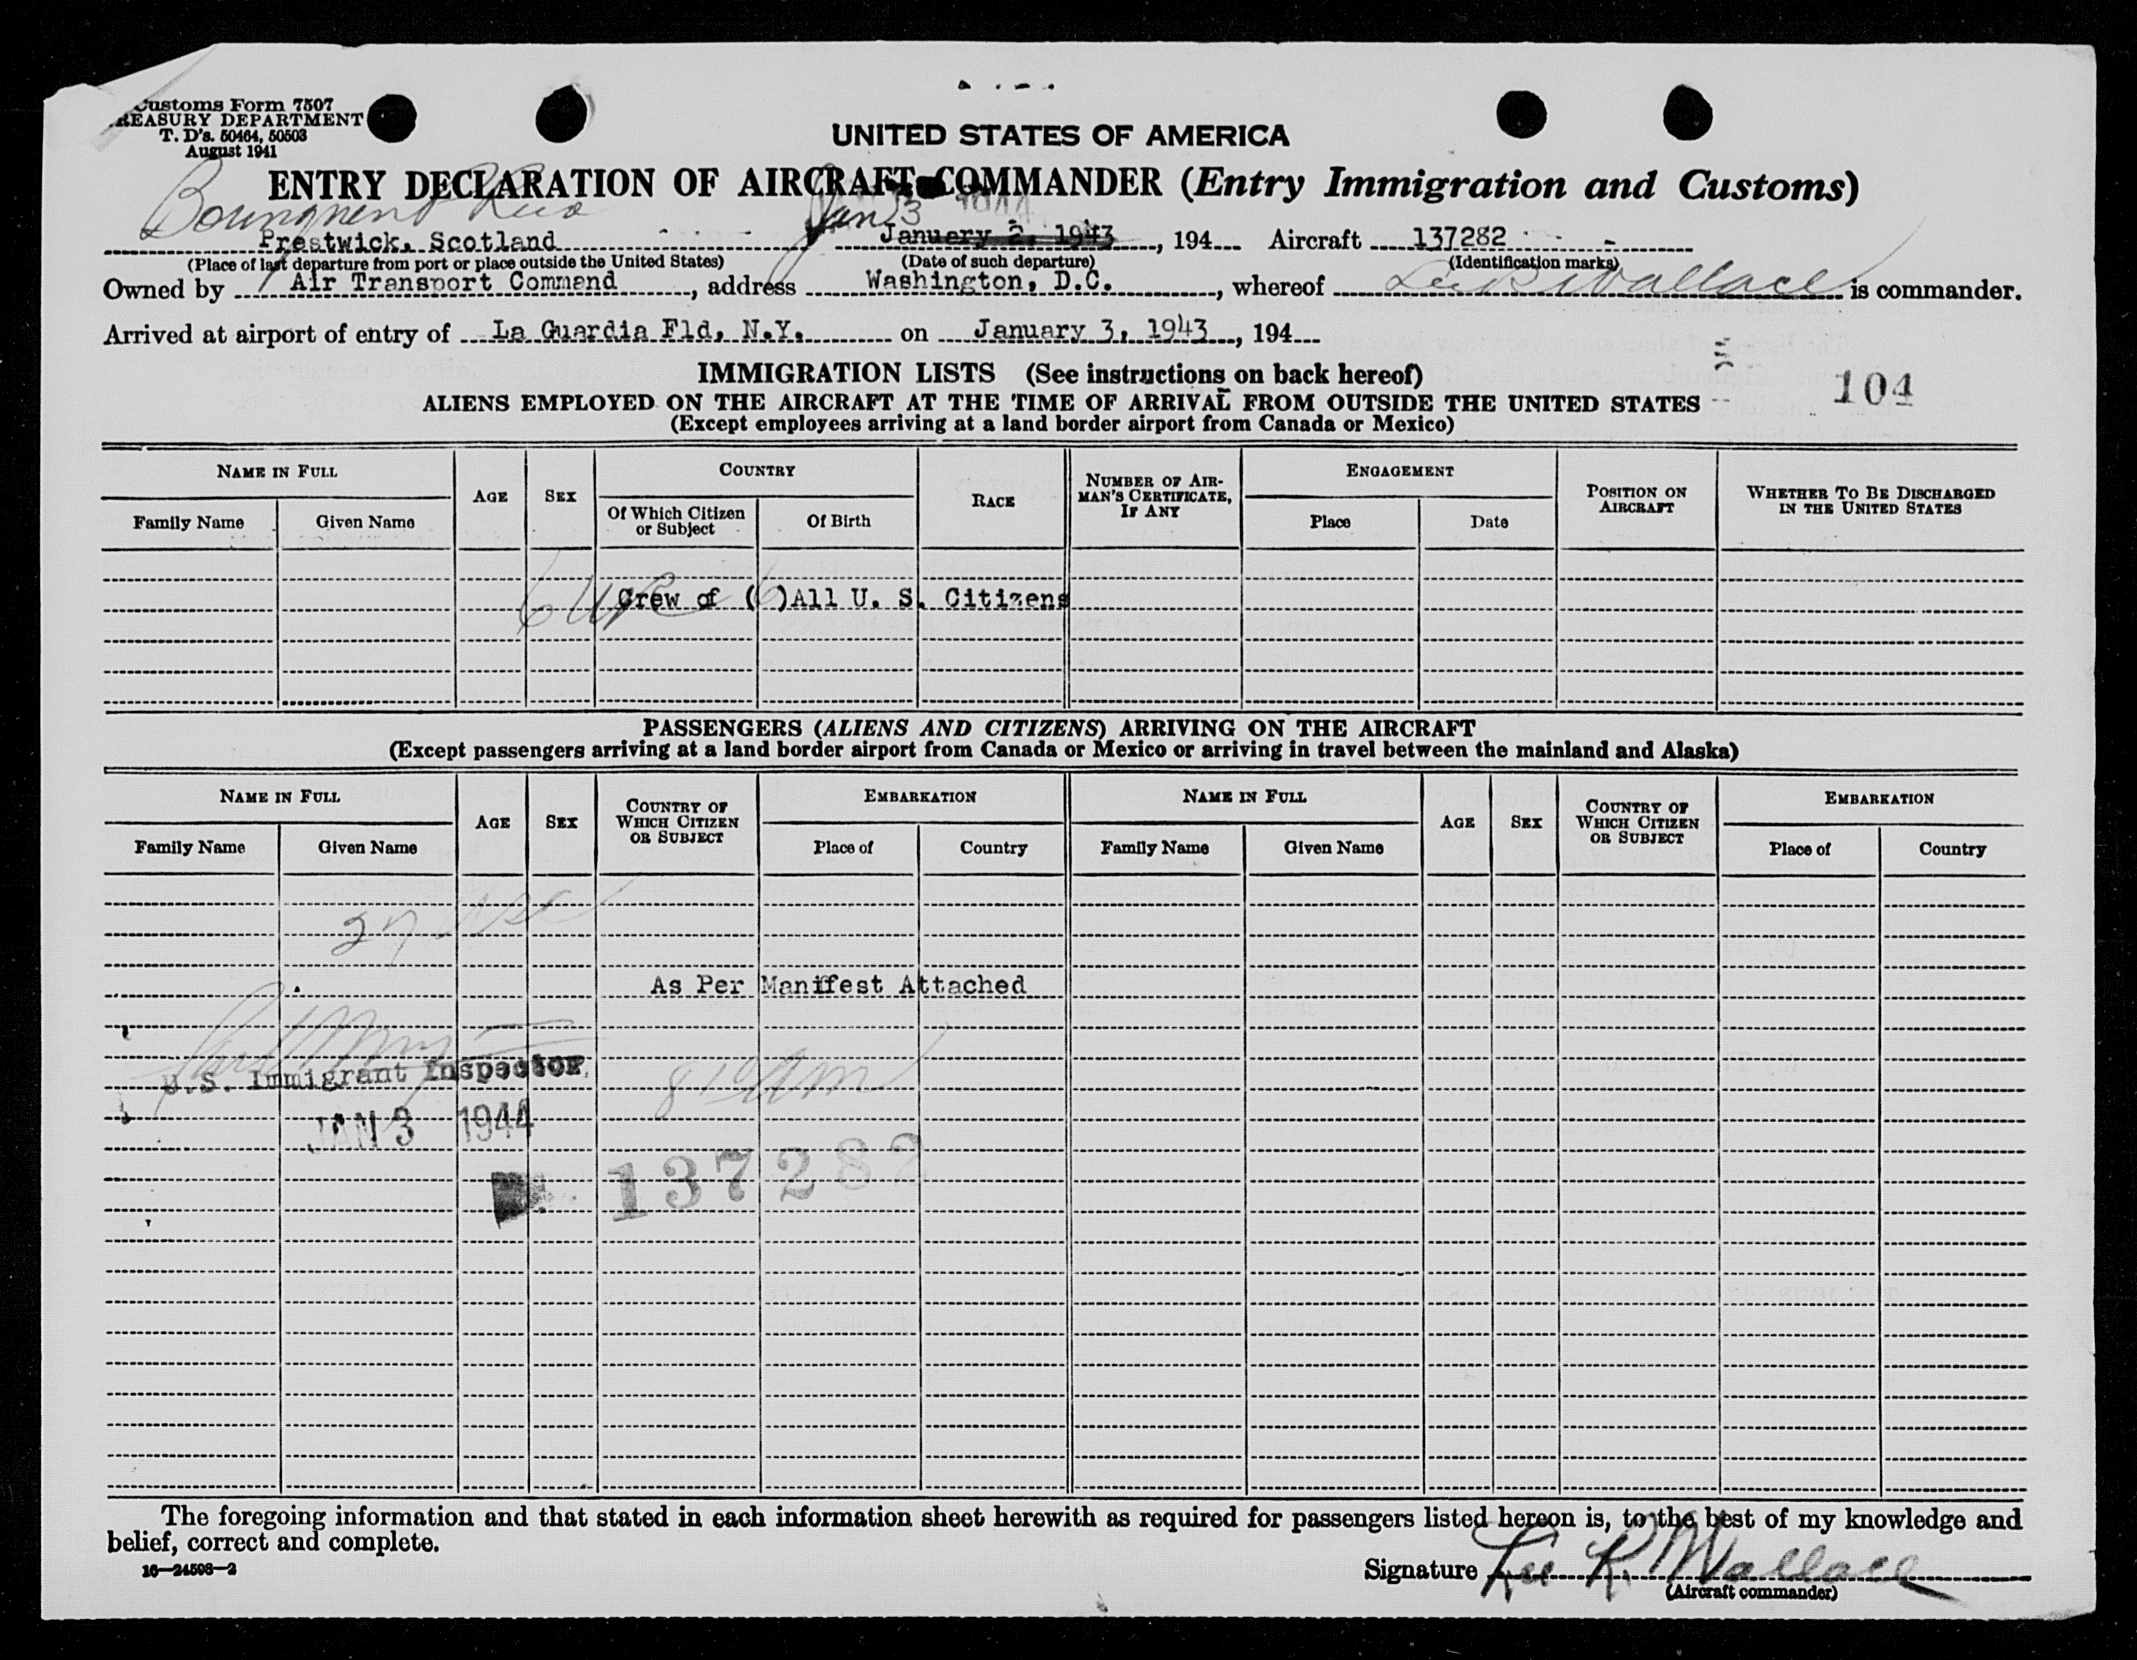 Customs Form 7507
TREASURY DEPARTMENT
T. D's. 50464, 50503
August 1941
UNITED STATES OF AMERICA
ENTRY DECLARATION OF AIRCRAFT COMMANDER (Entry Immigration and Customs)
Jan 3 1944
Prestwick, Scotland January 2, 1943, 194 Aircraft 137282
(Place of last departure from port or place outside the United States) (Date of such departure) (Identification marks)
Owned by Air Transport Command, address Washington, D.C., whereof Lee R Wallace is commander.
Arrived at airport of entry of La Guardia Fld, N.Y. on January 3, 1943, 194
IMMIGRATION LISTS (See instructions on back hereof)
104
ALIENS EMPLOYED ON THE AIRCRAFT AT THE TIME OF ARRIVAL FROM OUTSIDE THE UNITED STATES
(Except employees arriving at a land border airport from Canada or Mexico)
NAME IN FULL AGE SEX COUNTRY RACE NUMBER OF AIRMAN'S CERTIFICATE, IF ANY ENGAGEMENT POSITION ON AIRCRAFT WHETHER TO BE DISCHARGED IN THE UNITED STATES
Family Name Given Name Of Which Citizen or Subject Of Birth Place Date
6 Crew of (6) All U. S. Citizens
PASSENGERS (ALIENS AND CITIZENS) ARRIVING ON THE AIRCRAFT
(Except passengers arriving at a land border airport from Canada or Mexico or arriving in travel between the mainland and Alaska)
NAME IN FULL AGE SEX COUNTRY OF WHICH CITIZEN OR SUBJECT EMBARKATION NAME IN FULL AGE SEX COUNTRY OF WHICH CITIZEN OR SUBJECT EMBARKATION
Family Name Given Name Place of Country Family Name Given Name Place of Country
27
As Per Manifest Attached
U.S. Immigrant Inspector
JAN 3 1944
137282
The foregoing information and that stated in each information sheet herewith as required for passengers listed hereon is, to the best of my knowledge and
belief, correct and complete.
16—24598-2
Signature Lee R. Wallace
(Aircraft commander)